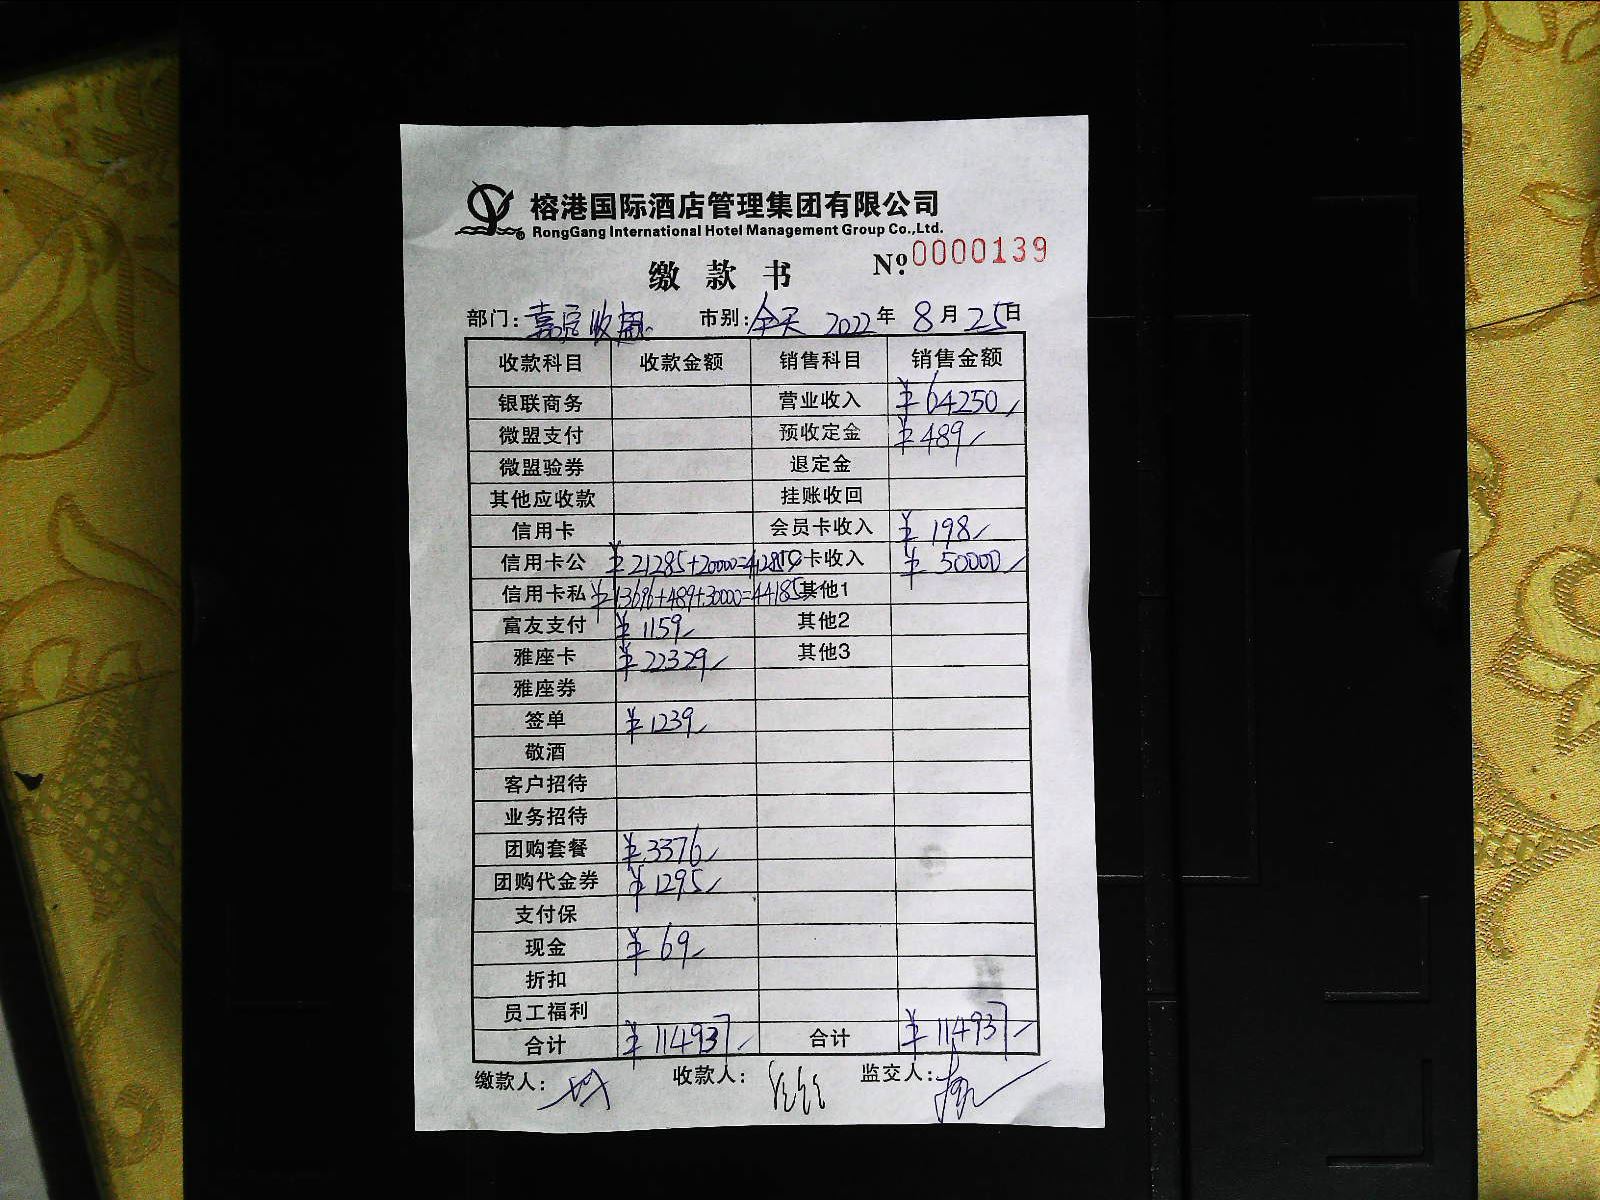 榕港国际酒店管理集团有限公司
RongGang International Hotel Management Group Co.,Ltd.
缴款书 №0000139
部门： 市别：全天 2022年8月25日
收款科目 收款金额 销售科目 销售金额
银联商务 营业收入 ¥64250
微盟支付 预收定金 ¥489
微盟验券 退定金
其他应收款 挂账收回
信用卡 会员卡收入 ¥198
信用卡公 ¥21285+20000=41285 卡收入 ¥50000
信用卡私 ¥13696+489+30000=44185 其他1
富友支付 ¥1159 其他2
雅座卡 ¥22329 其他3
雅座券
签单 ¥1239
敬酒
客户招待
业务招待
团购套餐 ¥3376
团购代金券 ¥1295
支付保
现金 ¥69
折扣
员工福利
合计 ¥114937 合计 ¥114937
缴款人： 收款人： 监交人：